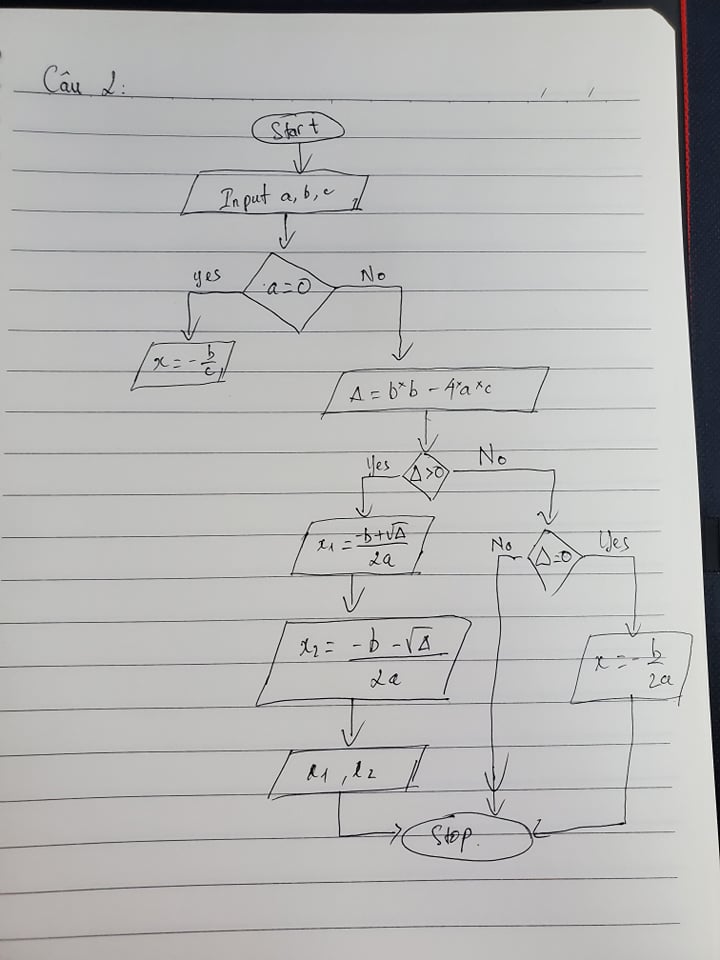 Câu 2:
Start
Input a, b, c
yes
a=0
No
x = -b/c
Δ = b*b - 4*a*c
Yes
Δ>0
No
x1 = -b+√Δ/2a
No
Δ=0
Yes
x2 = -b-√Δ/2a
x = -b/2a
x1, x2
Stop.